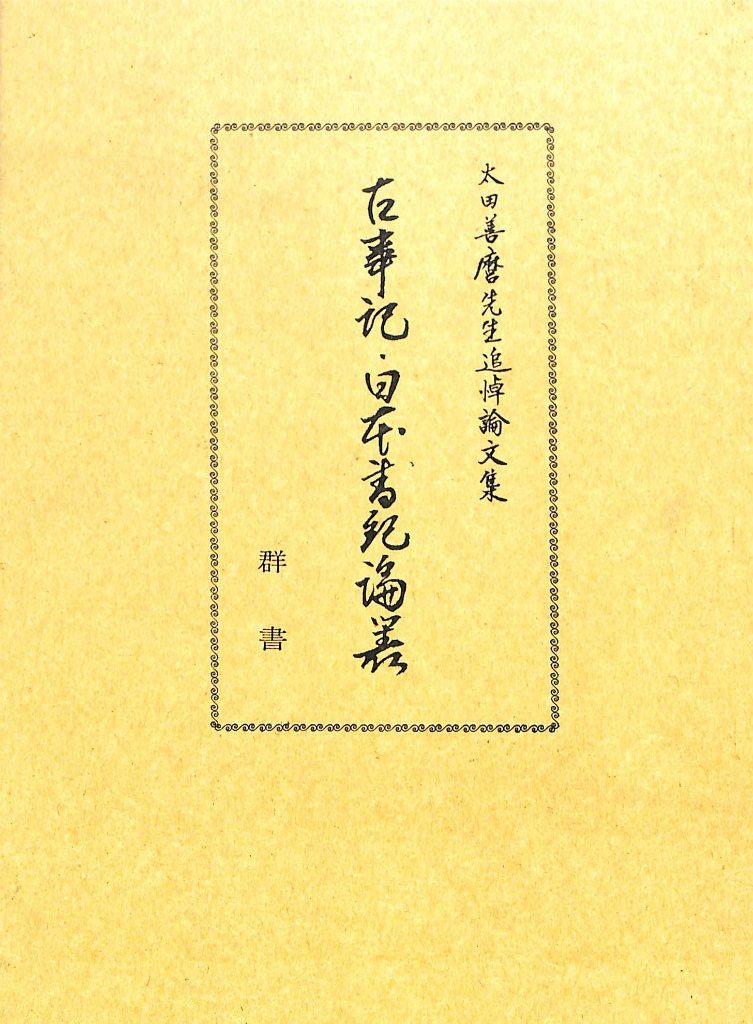 太田善麿先生追悼論文集
古事記・日本書紀論叢
群書